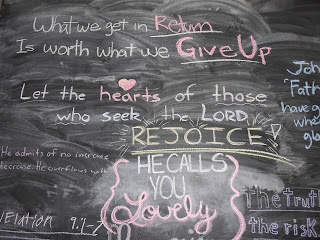 What we get in Return
Is worth what we Give Up
Let the hearts of those
who seek the LORD
REJOICE!
HE CALLS
YOU
Lovely
He admits of no increase
decrease. He overflows with
9:1-7
Joh
"Fath
have g
whe
glo
the truth
the risk.